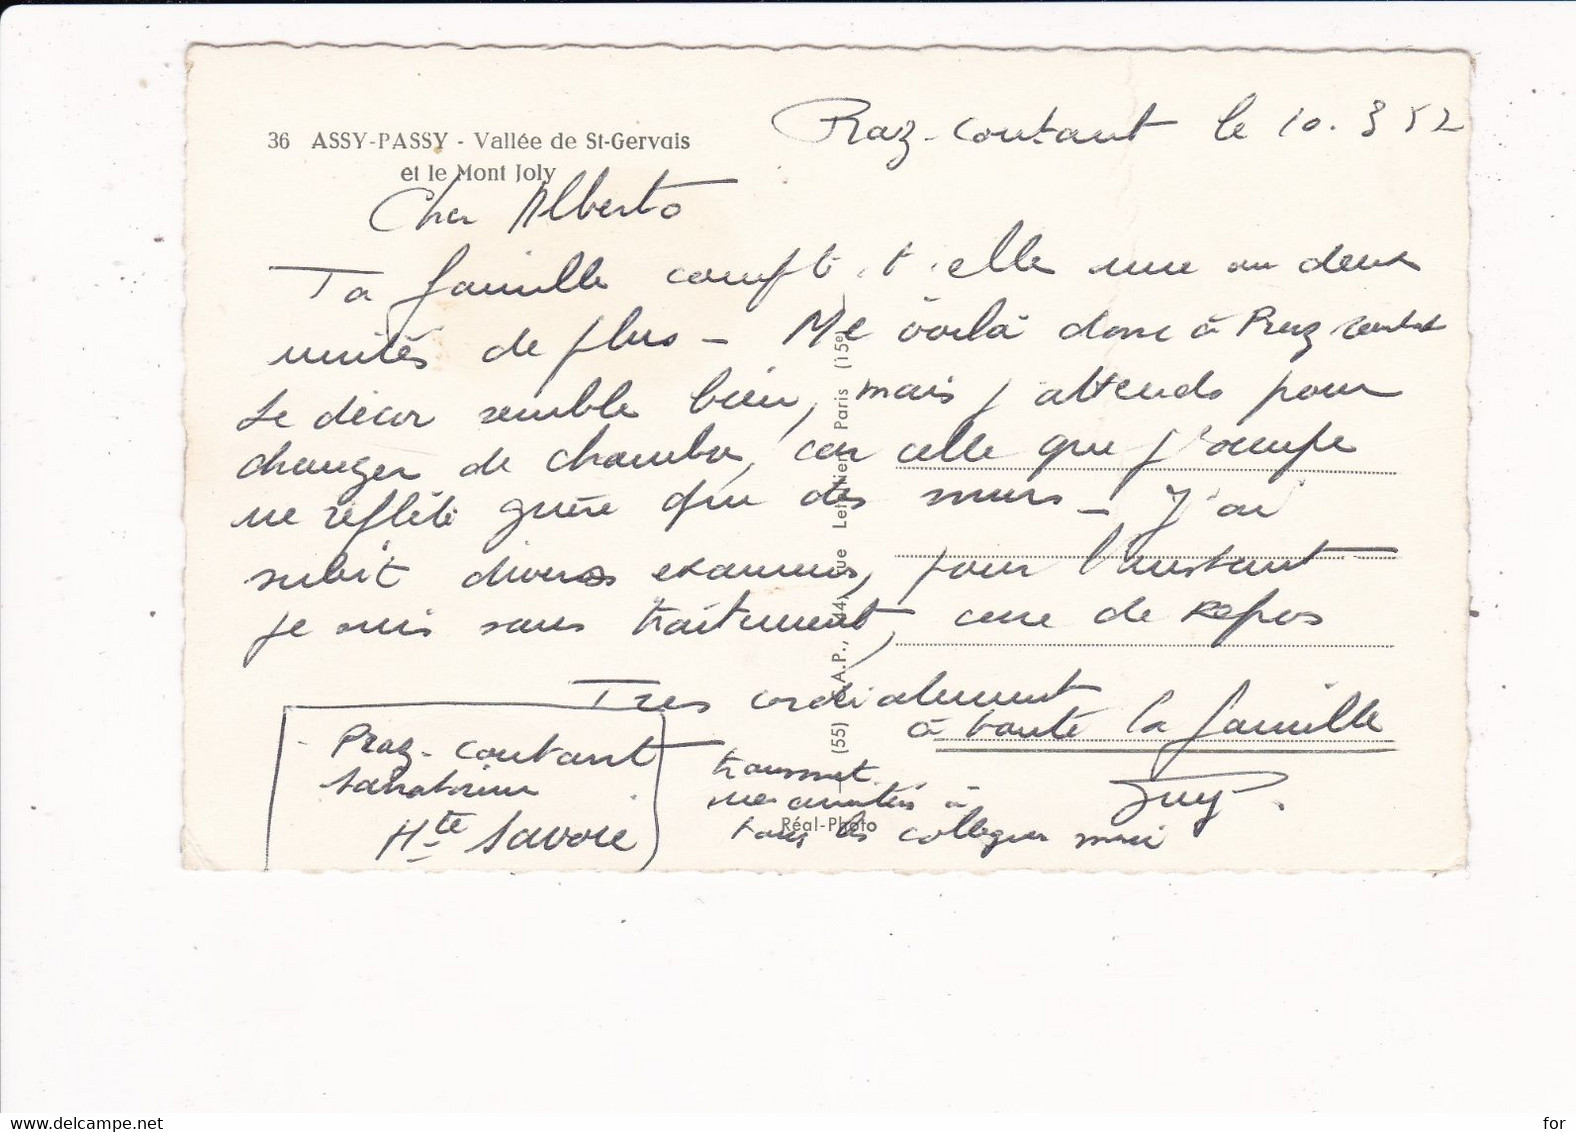 36 ASSY-PASSY - Vallée de St-Gervais
et le Mont Joly
Praz-Coutant le 10.3 52
Cher Alberto
Ta famille compte t elle une ou deux
unités de plus - Me voilà donc à Praz coutant
Le décor semble bien, mais j'attends pour
changer de chambre, car celle que j'occupe
ne reflète guère que des murs - J'ai
subit divers examens, pour l'instant
je suis sans traitement, cure de repos
Très cordialement
à toute la famille
Guy
Praz-Coutant
Sanatorium
Hte Savoie
transmet
mes amitiés à
tous les collègues merci
(55) C.A.P., 44, rue Letellier, Paris (15e)
Réal-Photo
www.delcampe.net
for